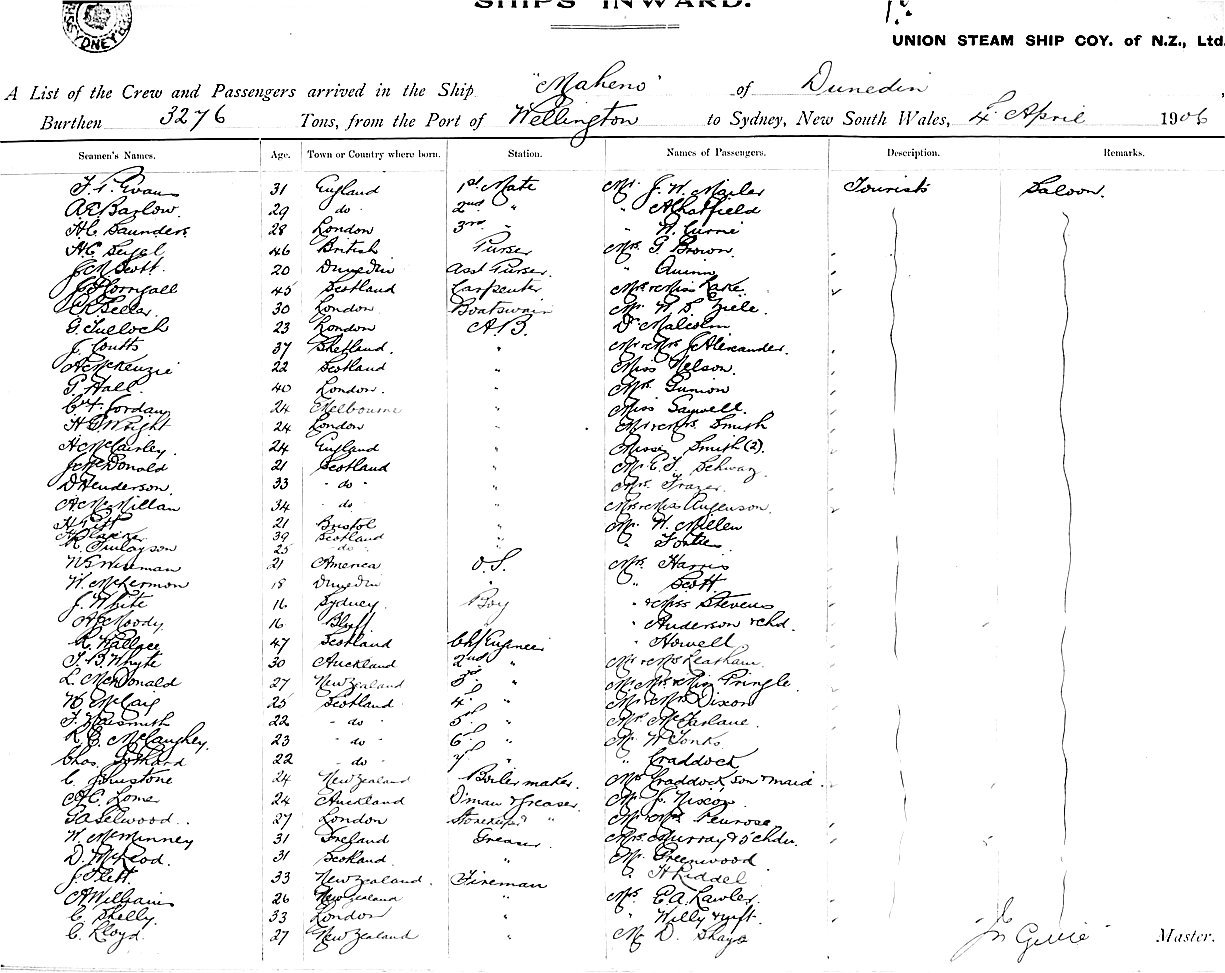 SHIPS INWARD.
SYDNEY
UNION STEAM SHIP COY. of N.Z., Ltd.
A List of the Crew and Passengers arrived in the Ship "Maheno" of Dunedin,
Burthen 3276 Tons, from the Port of Wellington to Sydney, New South Wales, 4th April 1906
Seamen's Names. Age. Town or Country where born. Station. Names of Passengers. Description. Remarks.
31 England 1st Mate Mr. J. W. Mailer Tourists Saloon.
A E Barlow. 29 do. 2nd " " A Chatfield
H C Saunders 28 London 3rd " " W.
46 British Purser Mrs. G Brown.
J M Scott. 20 Dunedin Asst Purser. " Quinn
45 Scotland Carpenter Mr & Miss Lake.
30 London. Boatswain Mr. W. L. Ziele.
G. Tulloch 23 London A.B. Dr Malcolm
J. Coutts 37 Shetland. " Mr & Mrs J Alexander.
A McKenzie 22 Scotland " Miss Nelson.
G. Hall. 40 London. " Mrs. Gunion
Jordan 24 Melbourne " Miss Saywell.
H G Wright 24 London " Mr & Mrs Smith
24 England " Misses Smith (2).
J McDonald 21 Scotland " Mr E. J. Schwaz.
D Henderson. 33 - do - " Mrs. Frazer.
A McMillan 34 - do - " Mr & Miss
H Pitt 21 Bristol " Mr. W. Millen
39 Scotland "
K. Finlayson 25 - do - "
W S Wiseman 21 America O.S. Mrs. Harris
W. McKermon 18 Dunedin " " Scott.
J. White 16 Sydney. Boy " & Miss Stevens
A Moody. 16 Bluff " Anderson & chd.
R. Wallace 47 Scotland Chf Engineer " Howell
J. B. Whyte 30 Auckland 2nd " Mr & Mrs Leatham.
L. McDonald 27 New Zealand 3rd " Mr Mrs & Miss Pringle.
W McCaig 25 Scotland 4th " Mr & Mrs Dixon
J. Naismith 22 - do - 5th " Mrs McFarlane.
R. G. McCaughey. 23 - do - 6th " Mr W Tonks
Chas. Gothard 22 - do - 7th " " Craddock.
C Johnstone 24 New Zealand Boilermaker. Mrs Craddock, son & maid.
A C. Lomer 24 Auckland D'man & Greaser. Mr J. Nixon.
G A Selwood. 27 London " Mr & Mrs Penrose.
W. McMinney 31 Ireland Greaser. Mrs Murray & 5 chdn.
D. McLeod. 31 Scotland. " Mr Greenwood
J. Flett. 33 New Zealand. Fireman " H Riddel
A Williams 26 New Zealand " Mrs. E. A. Lawler.
C Shelly. 33 London " " Willy & wift.
C. Lloyd. 27 New Zealand " Mr D. Shays
Master.